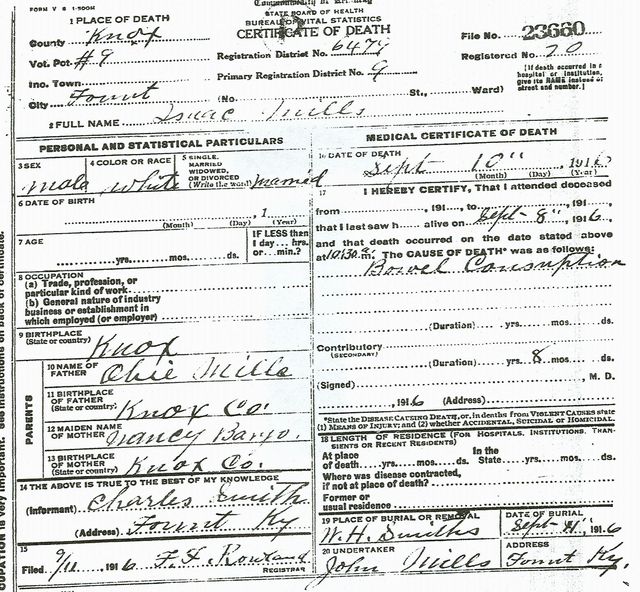 FORM V S 1-500M
Commonwealth of Kentucky
STATE BOARD OF HEALTH
BUREAU OF VITAL STATISTICS
CERTIFICATE OF DEATH
1 PLACE OF DEATH
County Knox
Vot. Pct #9
Inc. Town
City Fount (No. St., Ward)
Registration District No. 6479
Primary Registration District No. 9
File No. 23660
Registered No. 20
[If death occurred in a
hospital or institution,
give its NAME instead of
street and number.]
2 FULL NAME Isaac Mills
PERSONAL AND STATISTICAL PARTICULARS
3 SEX male
4 COLOR OR RACE white
5 SINGLE,
MARRIED
WIDOWED,
OR DIVORCED
(Write the word) married
6 DATE OF BIRTH
, 1
(Month) (Day) (Year)
7 AGE
yrs. mos. ds.
IF LESS than
1 day hrs.
or min.?
8 OCCUPATION
(a) Trade, profession, or
particular kind of work
(b) General nature of industry
business or establishment in
which employed (or employer)
9 BIRTHPLACE
(State or country) Knox
PARENTS
10 NAME OF
FATHER Obie Mills
11 BIRTHPLACE
OF FATHER
(State or country) Knox Co.
12 MAIDEN NAME
OF MOTHER Nancy Bargo.
13 BIRTHPLACE
OF MOTHER
(State or country) Knox Co.
14 THE ABOVE IS TRUE TO THE BEST OF MY KNOWLEDGE
(Informant) Charles Smith
(Address) Fount Ky
15
Filed 9/11, 1916 F. F. Rowland
REGISTRAR
MEDICAL CERTIFICATE OF DEATH
16 DATE OF DEATH
Sept 10", 1916
(Month) (Day) (Year)
17 I HEREBY CERTIFY, That I attended deceased
from , 191 , to , 191 ,
that I last saw h alive on Sept- 8", 1916,
and that death occurred on the date stated above
at 10:30 a. The CAUSE OF DEATH* was as follows:
Bowel Consumption
(Duration) yrs. mos. ds.
Contributory
(SECONDARY)
(Duration) yrs. 8 mos. ds.
(Signed) , M. D.
, 1916 (Address)
*State the DISEASE CAUSING DEATH, or, in deaths from VIOLENT CAUSES state
(1) MEANS OF INJURY; and (2) whether ACCIDENTAL, SUICIDAL OR HOMICIDAL.
18 LENGTH OF RESIDENCE (FOR HOSPITALS, INSTITUTIONS, TRAN-
SIENTS OR RECENT RESIDENTS)
At place
of death yrs. mos. ds.
In the
State yrs. mos. ds.
Where was disease contracted,
if not at place of death?
Former or
usual residence
19 PLACE OF BURIAL OR REMOVAL
W. H. Smiths
DATE OF BURIAL
Sept- 11", 1916
20 UNDERTAKER
John Mills
ADDRESS
Fount Ky.
UPATION is very important. See instructions on back of certificate.